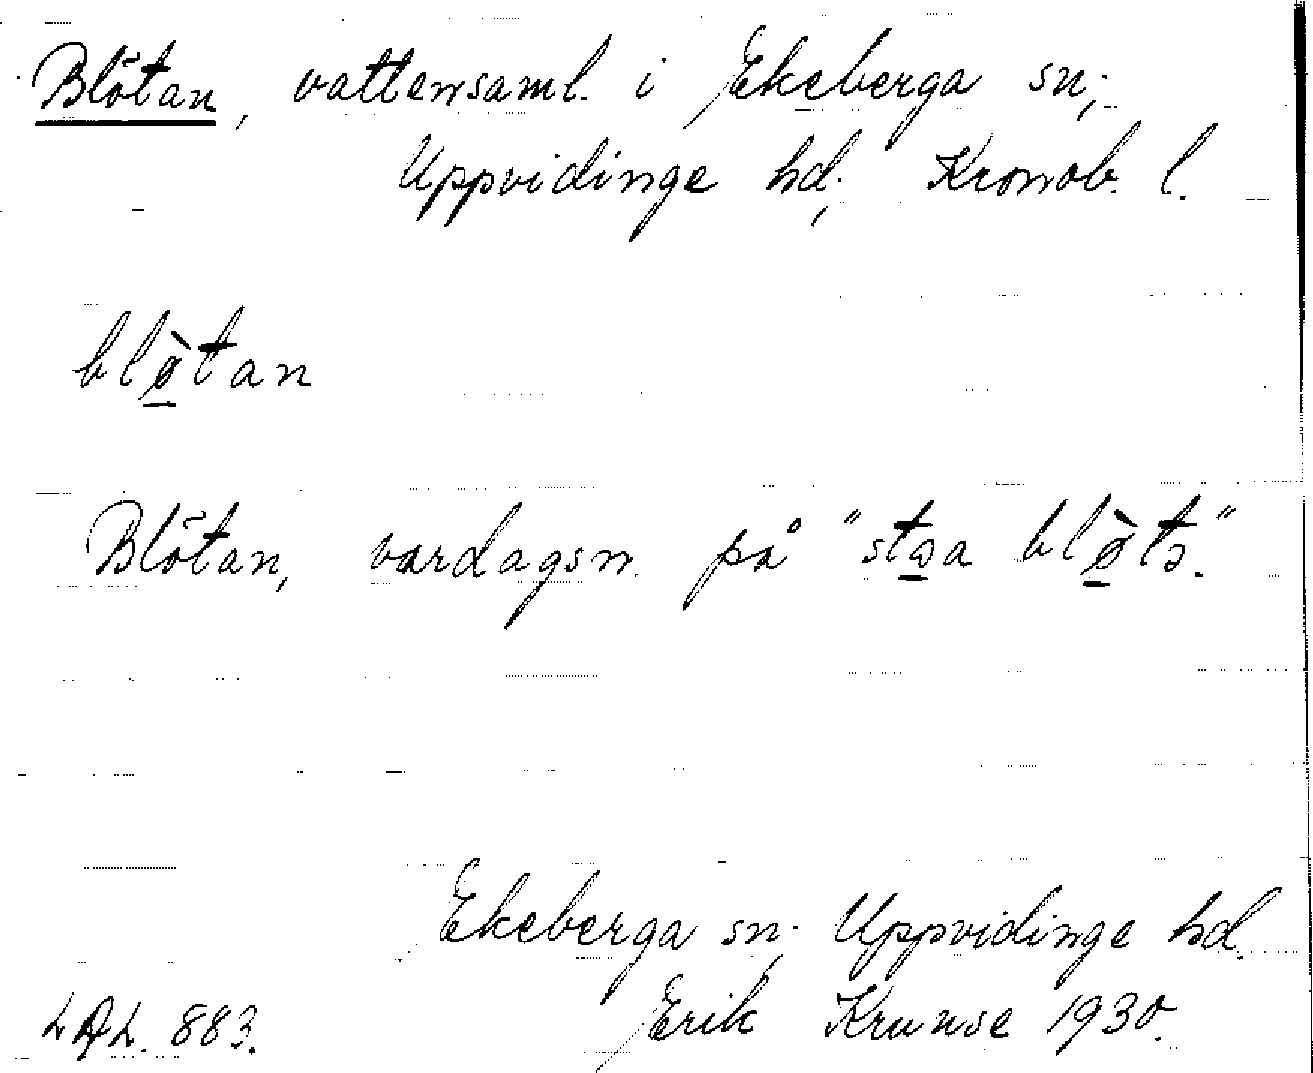 Blötan, vattensaml. i Ekeberga sn;
Uppvidinge hd; Kronob. l.
blø̱̀tan
Blötan, vardagsn. på "sto̱a blø̱̀tə."
Ekeberga sn. Uppvidinge hd.
LAL. 883. Erik Krunse 1930.